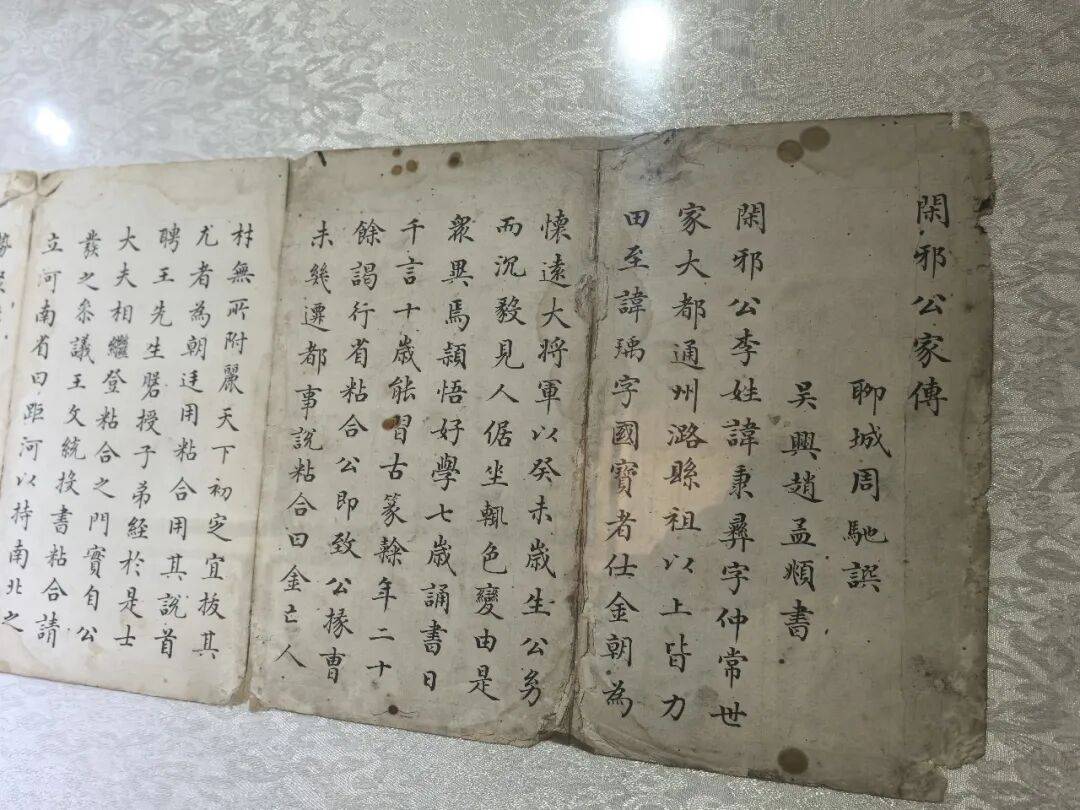 閑邪公家傳
聊城周馳譔
吴興趙孟頫書
閑邪公李姓諱秉彝字仲常世
家大都通州潞縣祖以上皆力
田至諱瑀字國寶者仕金朝為
懷遠大将軍以癸未歲生公㓜
而沉毅見人倨坐輒色變由是
衆異焉頴悟好學七歲誦書日
千言十歲能習古篆隸年二十
餘謁行省粘合公即致公掾曹
未幾遷都事說粘合曰金亡人
材無所附麗天下初定宜拔其
尤者為朝廷用粘合用其說首
聘王先生磐授子弟經於是士
大夫相繼登粘合之門實自公
發之叅議王文統投書粘合請
立河南省曰距河以持南北之